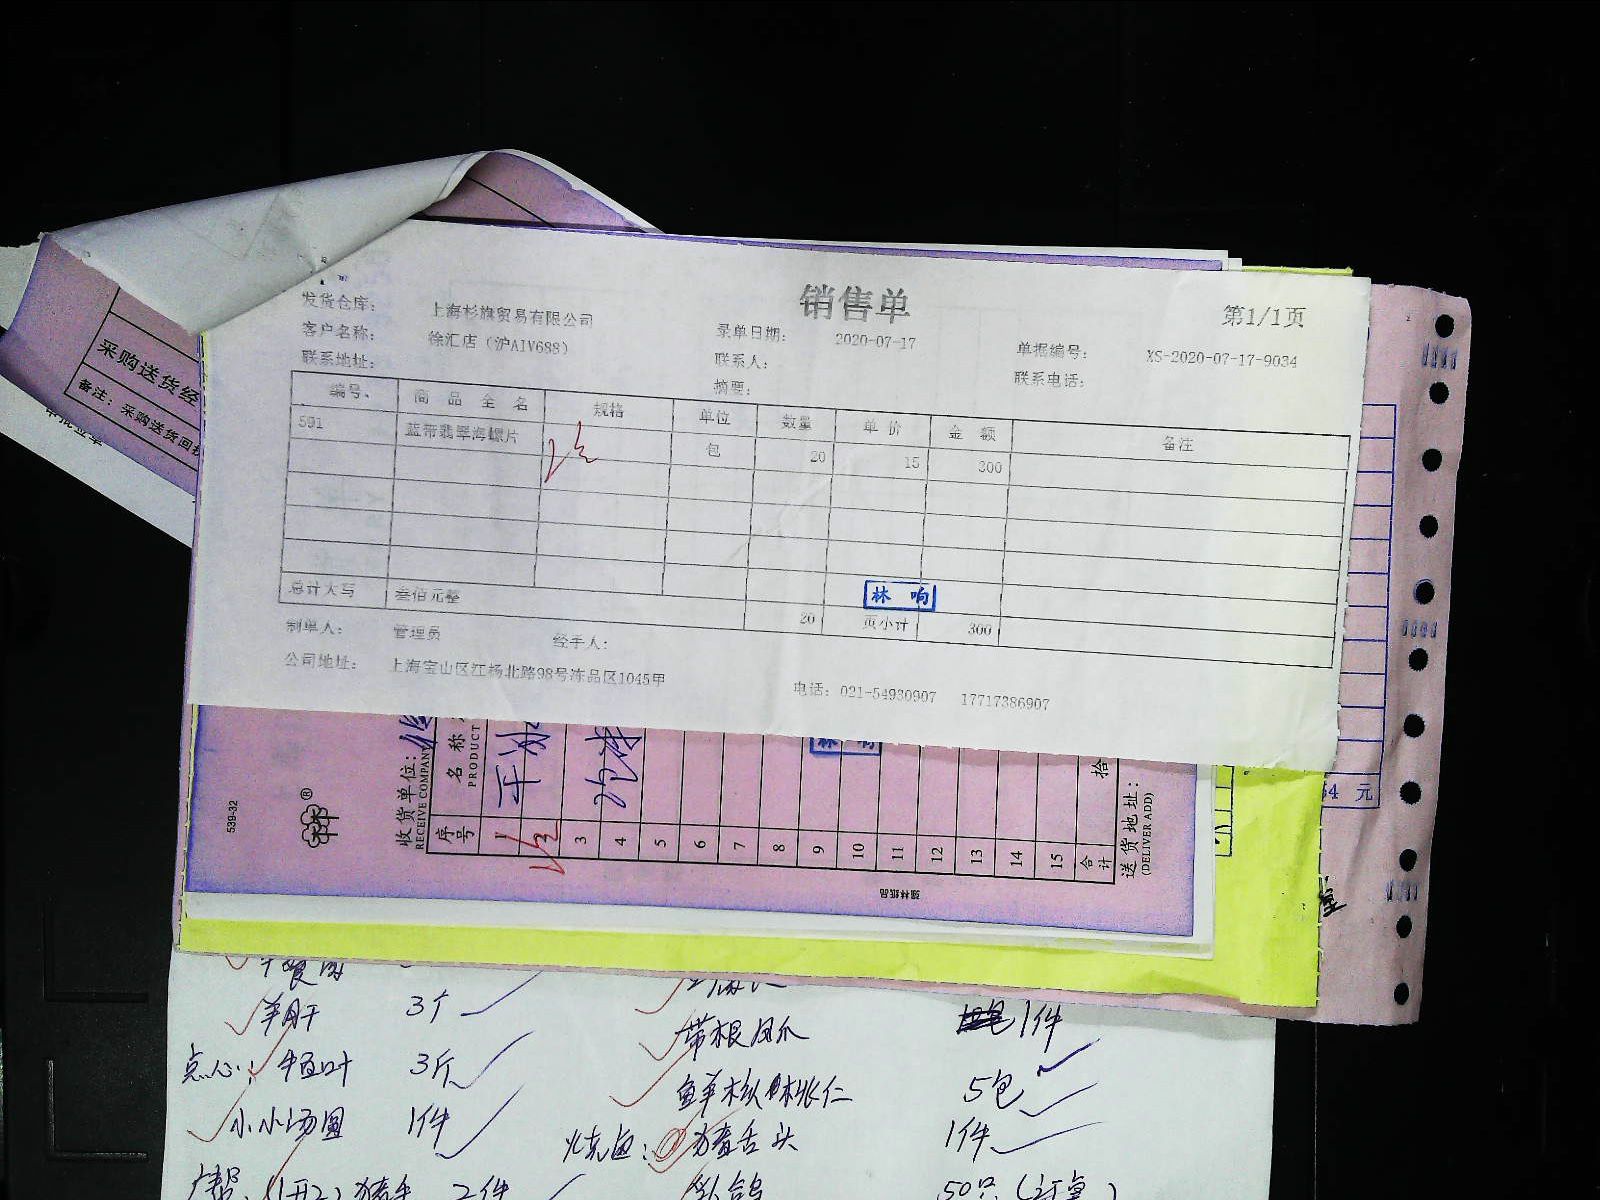 销售单
第1/1页
发货仓库: 上海杉旗贸易有限公司
录单日期: 2020-07-17
单据编号: XS-2020-07-17-9034
客户名称: 徐汇店（沪AIV688）
联系人:
联系电话:
联系地址:
摘要:
编号、 商品全名 规格 单位 数量 单价 金额 备注
591 蓝带翡翠海螺片 包 20 15 300
总计大写 叁佰元整 20 页小计 300
林响
制单人: 管理员 经手人:
公司地址: 上海宝山区江杨北路98号冻品区1045甲
电话: 021-54930907 17717386907
采购送货经
备注：采购送货回
审批签单
539-32
收货单位:
RECEIVE COMPANY
序号
名称
PRODUCT
1
3
4
5
6
7
8
9
10
11
12
13
14
15
合计
拾
送货地址:
(DELIVER ADD)
强林纸品
54 元
羊肝 3斤
带根凤爪 1件
点心: 3斤
鲜核桃仁 5包
小小汤圆 1件
烧卤: 猪舌头 1件
2件
50只